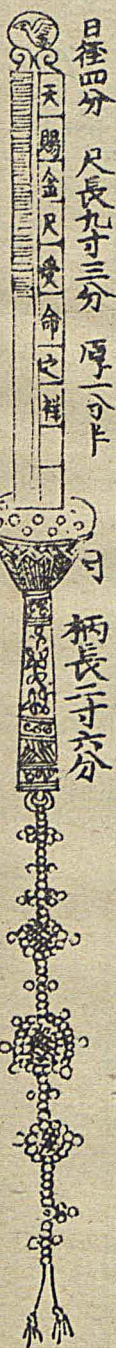 日徑四分　尺長九寸三分　厚一分卜
天賜金尺受命之祥
月
柄長二寸六分